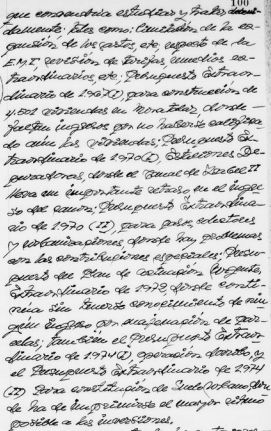 100
que convendría estudiar y tratar
damente; tales como: Cancelación de la ex-
pansión de los gastos, etc, respecto de la
E.M.T. revisión de tarifas, medios ex-
traordinarios, etc; Presupuesto Extraor-
dinario de 1967(I), para construcción de
4.502 viviendas en Moratalaz, donde
faltan ingresos por no haberse
aún las viviendas; Presupuesto Ex-
traordinario de 1970(I), Estaciones De-
puradoras, donde el Canal de Isabel II
lleva un importante retraso en el ingre-
so del canon; Presupuesto Extraordina-
rio de 1970 (II), para gastos, colectores
y urbanizaciones, donde hay problemas
con las contribuciones especiales; Presu-
puesto del Plan de actuación Urgente,
Extraordinario de 1972, donde conti-
núa sin tenerse conocimiento de nin-
gún ingreso por enajenación de par-
celas; también el Presupuesto Extraor-
dinario de 1974(I) operación y
el Presupuesto Extraordinario de 1974
(II) para constitución de Suelo Urbano, don-
de ha de imprimirse el mayor ritmo
posible a las inversiones.